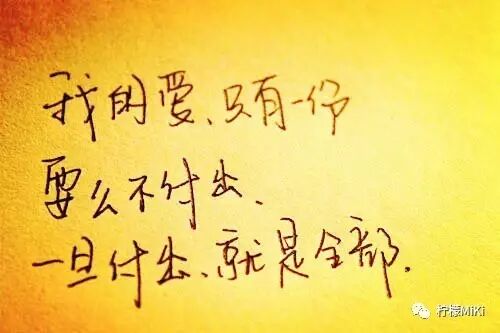 我的爱、只有一份
要么不付出、
一旦付出、就是全部.
柠檬MiKi